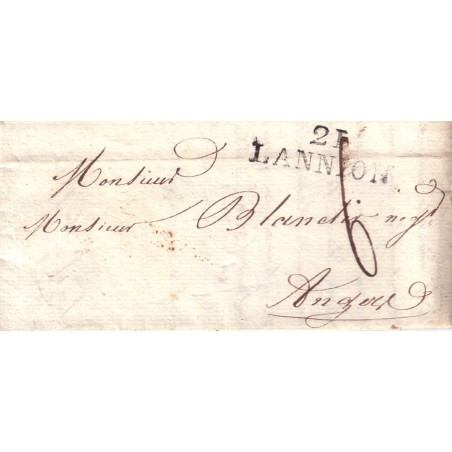 21
LANNION
6
Monsieur
Monsieur Blanchi neg.t
Angers